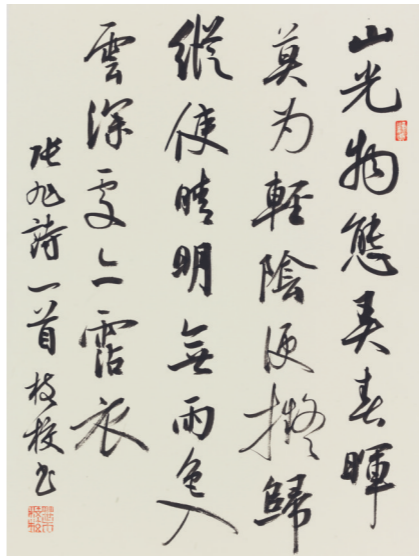 山光物態弄春暉
莫为輕陰便擬歸
縱使晴明無雨色入
雲深處亦霑衣
張旭詩一首書